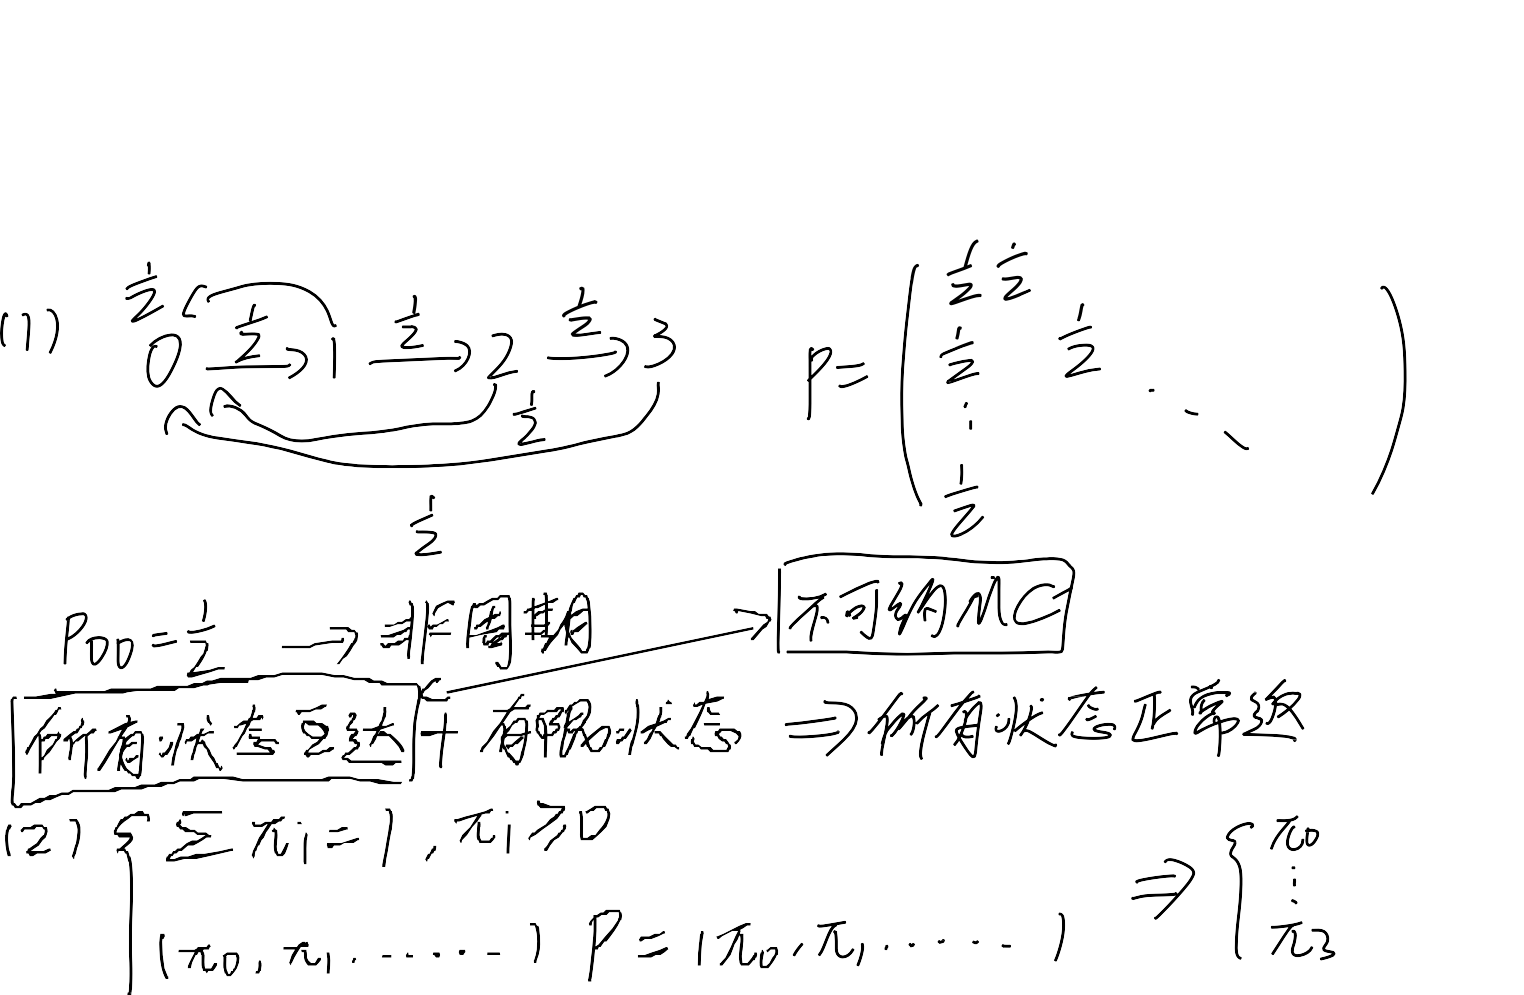 (1) 1/2 0 1/2 1 1/2 2 1/2 3
1/2
1/2
P= ( 1/2 1/2
1/2 1/2
⋮ ⋱
1/2 )
P00 = 1/2 → 非周期 不可约MC
所有状态互达 + 有限状态 ⇒ 所有状态正常返
(2) { Σπi=1, πi≥0 ⇒ { π0
⋮
π3
(π0, π1, ......) P = (π0, π1, ......)